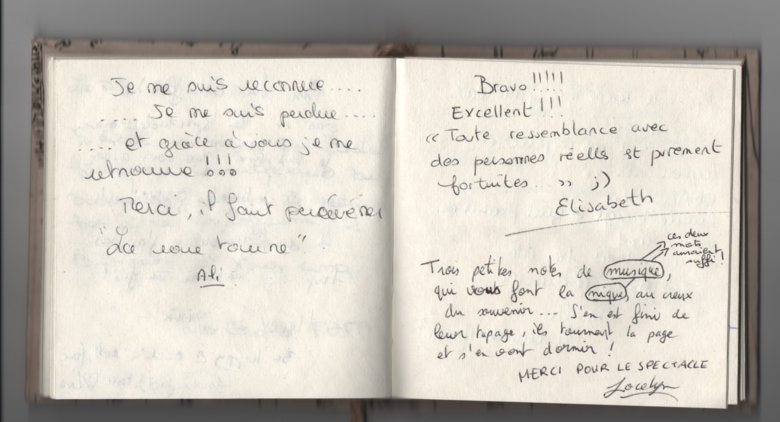 Je me suis reconnue....
... Je me suis perdue....
.... et grâce à vous je me
retrouve !!!
Merci, il faut persévérer
"La roue tourne"
Ali
Bravo !!!!!
Excellent !!!
« Toute ressemblance avec
des personnes réelles est purement
fortuites... » ;)
Elisabeth
ces deux
mots
auraient
suffi !
Trois petites notes de musique,
qui vous font la nique au creux
du souvenir... S'en est fini de
leur tapage, ils tournent la page
et s'en vont dormir !
MERCI POUR LE SPECTACLE
Jocelyn